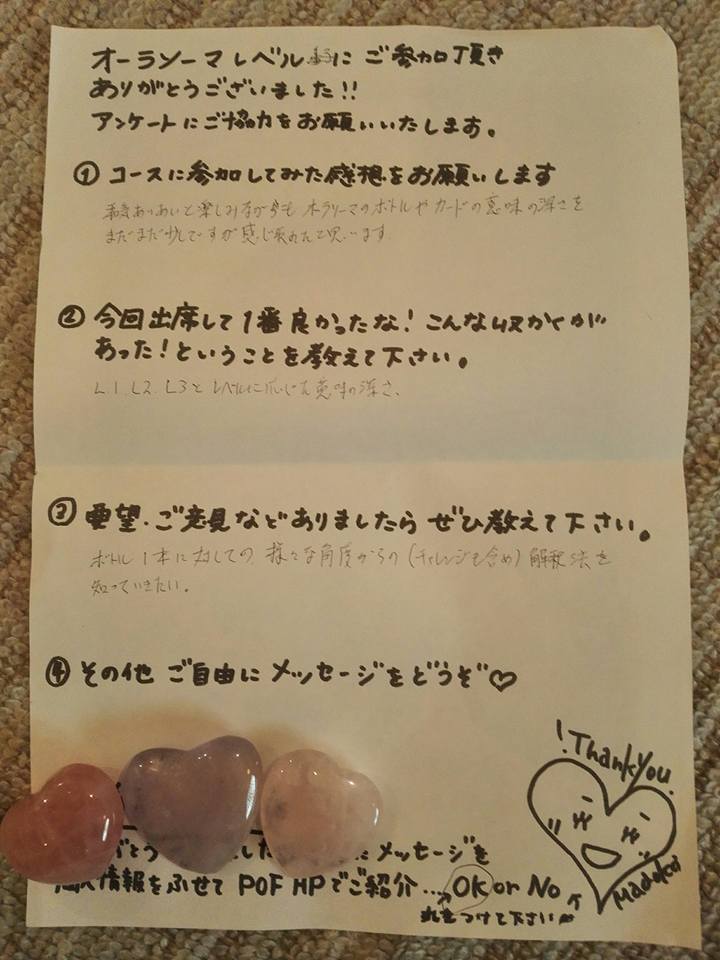 オーラソーマレベル に ご参加頂き
ありがとうございました!!
アンケートにご協力をお願いいたします。
① コースに参加してみた感想をお願いします
あいあいと楽しみながらも オーラソーマのボトルやカードの意味の深さを
まだまだ少しですが感じ取れたと思います
② 今回出席して1番良かったな! こんな収かくが
あった!ということを教えて下さい。
L1, L2, L3と レベルに応じた意味の深さ、
③ 要望・ご意見などありましたら ぜひ教えて下さい。
ボトル1本に対しての 様々な角度からの(チャレンジも含め)解釈法を
知っていきたい。
④ その他 ご自由に メッセージをどうぞ♡
!Thankyou.
Madoka
メッセージを
情報をふせて POF HPでご紹介... OK or No
丸をつけて下さい